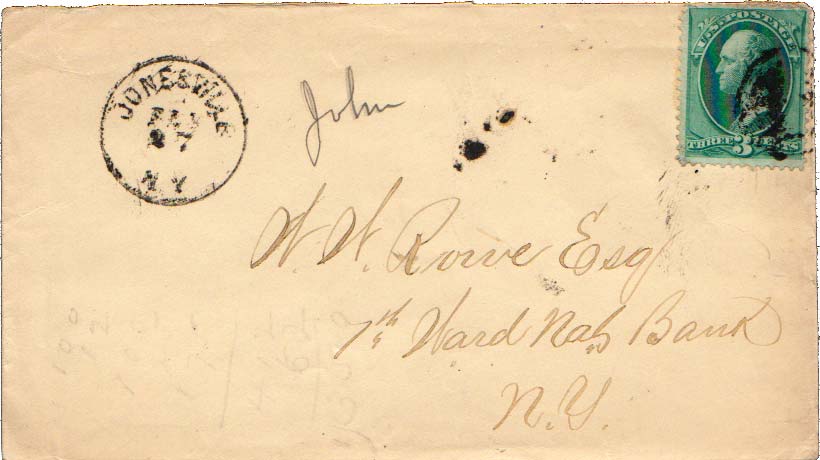 JONESVILLE
27
N.Y.
John
U.S. POSTAGE
THREE 3 CENTS
W. W. Rowe Esq
7th Ward Nat Bank
N.Y.